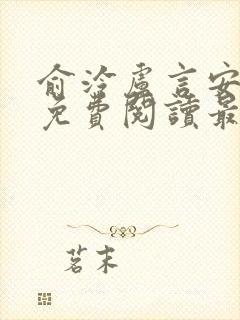 俞泠盧言安
免費閱讀最
茗末